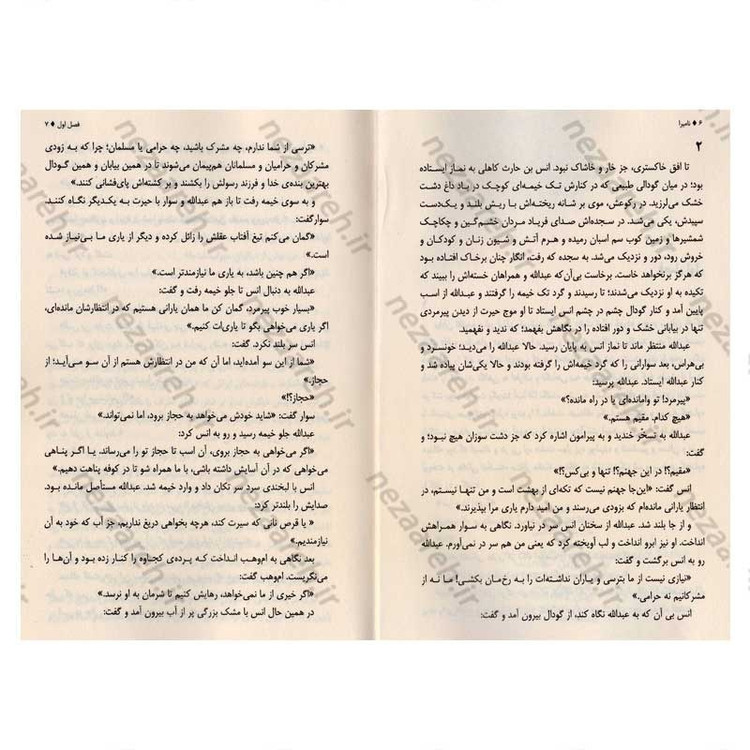 ۶ ♦ نامیرا
۲
تا افق خاکستری، جز خار و خاشاک نبود. انس بن حارث کاهلی به نماز ایستاده
بود؛ در میان گودالی طبیعی که در کنارش تک خیمه‌ای کوچک در باد داغ دشت
خشک می‌لرزید. در رکوعش، موی بر شانه ریخته‌اش با ریش بلند و یک‌دست
سپیدش، یکی می‌شد. در سجده‌اش صدای فریاد مردان خشمگین و چکاچک
شمشیرها و زمین کوب سم اسبان رمیده و هرم آتش و شیون زنان و کودکان و
خروش رود، دور و نزدیک می‌شد. به سجده که رفت، انگار چنان برخاک افتاده بود
که هرگز برنخواهد خاست. برخاست بی‌آن‌که عبدالله و همراهان خسته‌اش را ببیند که
تکیده به او نزدیک می‌شدند؛ تا رسیدند و گرد تک خیمه را گرفتند و عبدالله از اسب
پایین آمد و کنار گودال چشم در چشم انس ایستاد تا او موج حیرت از دیدن پیرمردی
تنها در بیابانی خشک و دور افتاده را در نگاهش بفهمد؛ که ندید و نفهمید.
عبدالله منتظر ماند تا نماز انس به پایان رسید. حالا عبدالله را می‌دید؛ خونسرد و
بی‌هراس، بعد سوارانی را که گرد خیمه‌اش را گرفته بودند و حالا یکی‌شان پیاده شد و
کنار عبدالله ایستاد. عبدالله پرسید:
«پیرمرد! تو وامانده‌ای یا در راه مانده؟»
«هیچ کدام. مقیم هستم.»
عبدالله به تسخّر خندید و به پیرامون اشاره کرد که جز دشت سوزان هیچ نبود؛ و
گفت:
«مقیم؟! در این جهنم؟! تنها و بی‌کس؟!»
انس گفت: «این‌جا جهنم نیست که تکه‌ای از بهشت است و من تنها نیستم، در
انتظار یارانی مانده‌ام که بزودی می‌رسند و من امید دارم یاری مرا بپذیرند.»
و از جا بلند شد. عبدالله از سخنان انس سر در نیاورد. نگاهی به سوار همراهش
انداخت. او نیز ابرو انداخت و لب آویخته کرد که یعنی من هم سر در نمی‌آورم. عبدالله
رو به انس برگشت و گفت:
«نیازی نیست از ما بترسی و یاران نداشته‌ات را به رخ‌مان بکشی! ما نه از
مشرکانیم نه حرامی.»
انس بی آن که به عبدالله نگاه کند، از گودال بیرون آمد و گفت:
فصل اول ♦ ۷
«ترسی از شما ندارم، چه مشرک باشید، چه حرامی یا مسلمان؛ چرا که به زودی
مشرکان و حرامیان و مسلمانان هم‌پیمان می‌شوند تا در همین بیابان و همین گودال
بهترین بنده‌ی خدا و فرزند رسولش را بکشند و بر کشته‌اش پای‌فشانی کنند.»
و به سوی خیمه رفت تا باز هم عبدالله و سوار با حیرت به یکدیگر نگاه کنند.
سوار گفت:
«گمان می‌کنم تیغ آفتاب عقلش را زائل کرده و دیگر از یاری ما بی‌نیاز شده
است.»
«اگر هم چنین باشد، به یاری ما نیازمندتر است.»
عبدالله به دنبال انس تا جلو خیمه رفت و گفت:
«بسیار خوب پیرمرد، گمان کن ما همان یارانی هستیم که در انتظارشان مانده‌ای،
اگر یاری می‌خواهی بگو تا یاری‌ات کنیم.»
انس سر بلند نکرد. گفت:
«شما از این سو آمده‌اید، اما آن که من در انتظارش هستم از آن سو می‌آید؛ از
حجاز.»
«حجاز؟!»
سوار گفت: «شاید خودش می‌خواهد به حجاز برود، اما نمی‌تواند.»
عبدالله جلو خیمه رسید و رو به انس کرد:
«اگر می‌خواهی به حجاز بروی، آن اسب تا حجاز تو را می‌رساند. یا اگر پناهی
می‌خواهی که در آن آسایش داشته باشی، با ما همراه شو تا در کوفه پناهت دهیم.»
انس با لبخندی سرد سر تکان داد و وارد خیمه شد. عبدالله مستأصل مانده بود.
صدایش را بلندتر کرد:
«یا قرص نانی که سیرت کند، هرچه بخواهی دریغ نداریم، جز آب که خود به آن
نیازمندیم.»
بعد نگاهی به ام‌وهب انداخت که پرده‌ی کجاوه را کنار زده بود و آن‌ها را
می‌نگریست. ام‌وهب گفت:
«اگر خیری از ما نمی‌خواهد، رهایش کنیم تا شرمان به او نرسد.»
در همین حال انس با مشک بزرگی پر از آب بیرون آمد و گفت:
nezaareh.ir